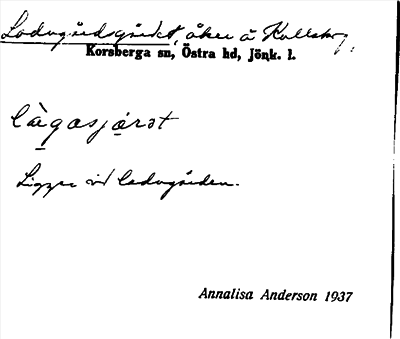 Ladugårdsgärdet, åker å Kullebo,
Korsberga sn, Östra hd, Jönk. l.
làgasjárət
Ligger vid ladugården.
Annalisa Anderson 1937